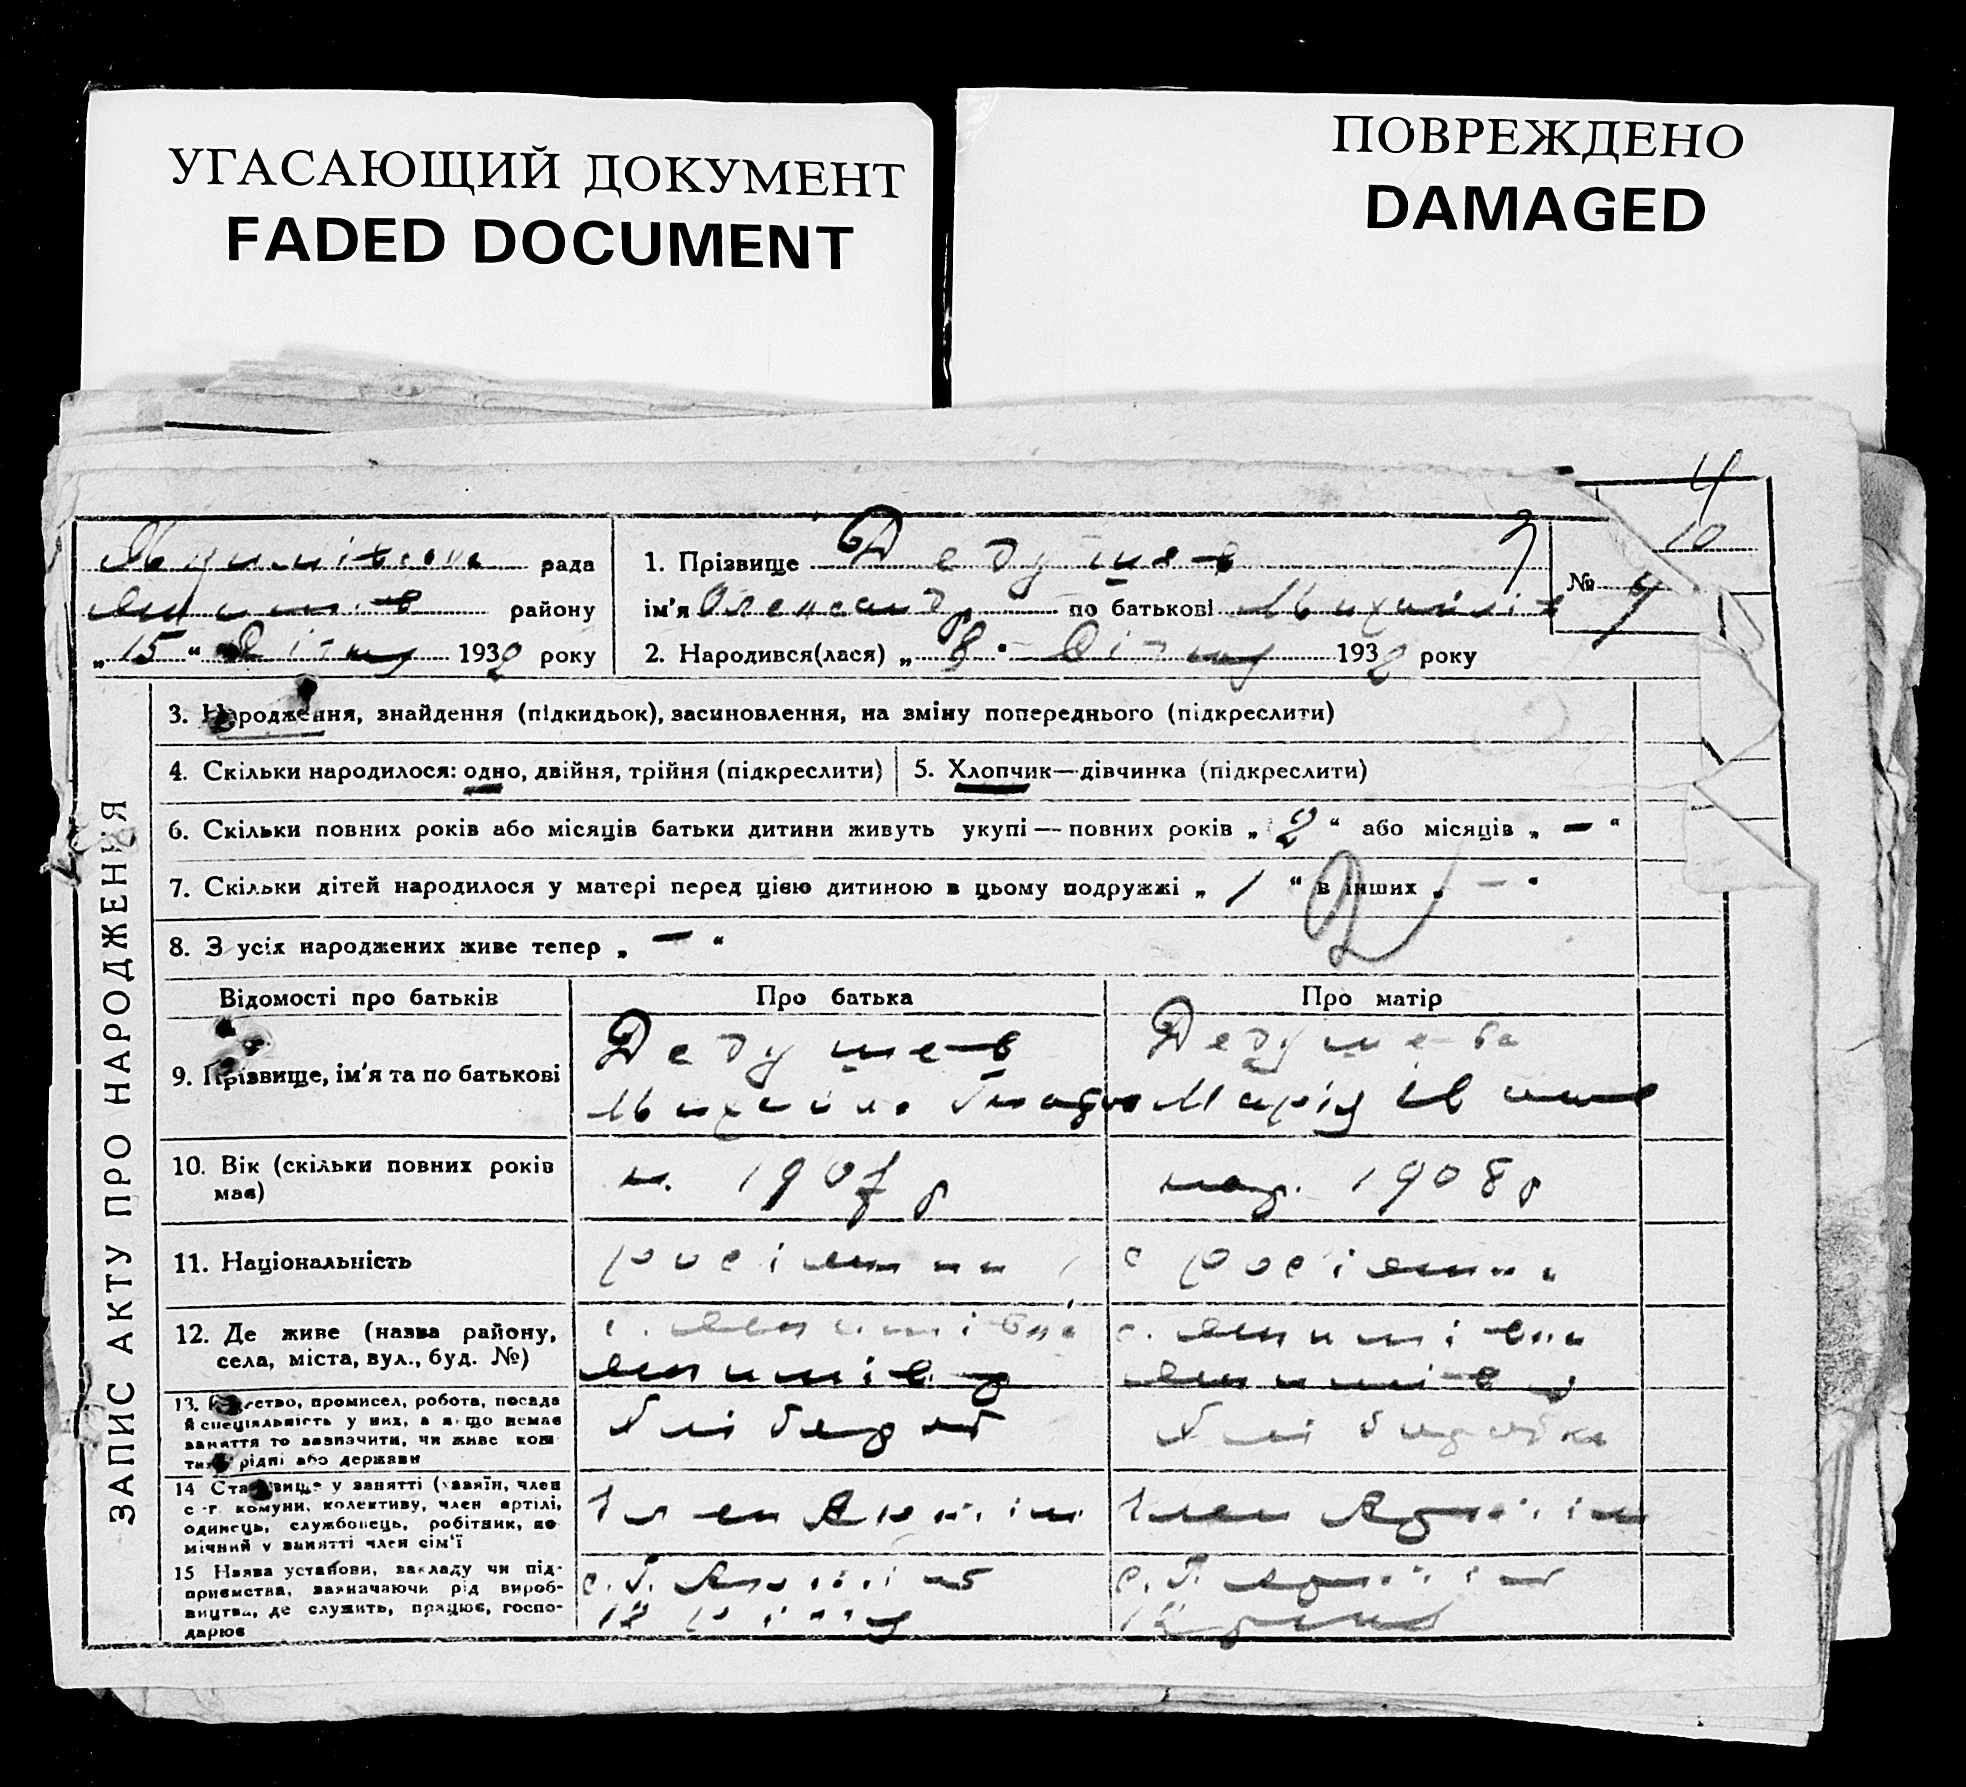 УГАСАЮЩИЙ ДОКУМЕНТ
FADED DOCUMENT
ПОВРЕЖДЕНО
DAMAGED
4
10
рада
району
„15“ 1932 року
1. Прізвище Дедушев
ім'я Олександр по батькові Михайлів
2. Народився(лася) „8“ 1932 року
№ 4
ЗАПИС АКТУ ПРО НАРОДЖЕННЯ
3. Народження, знайдення (підкидьок), засиновлення, на зміну попереднього (підкреслити)
4. Скільки народилося: одно, двійня, трійня (підкреслити)
5. Хлопчик—дівчинка (підкреслити)
6. Скільки повних років або місяців батьки дитини живуть укупі—повних років „2“ або місяців „—“
7. Скільки дітей народилося у матері перед цією дитиною в цьому подружжі „1“ в інших „—“
2
8. З усіх народжених живе тепер „—“
Відомості про батьків
Про батька
Про матір
9. Прізвище, ім'я та по батькові
Дедушев
Михайло
Дедушева
Марія
10. Вік (скільки повних років має)
н. 1907 р
нар. 1908 р
11. Національність
росіянин
росіянка
12. Де живе (назва району, села, міста, вул., буд. №)
13. Ремество, промисел, робота, посада й спеціяльність у них, а якщо немає заняття то зазначити, чи живе коштом рідні або держави
Хлібороб
Хліборобка
14 Становище у занятті (хазяїн, член с.-г. комуни, колективу, член артілі, одинець, службовець, робітник, помічний у занятті член сім'ї
Член Артілі
Член Артілі
15 Назва установи, закладу чи підприємства, зазначаючи рід виробництва, де служить, працює, господарює
с. Г. Артіль
с. Г. Артіль